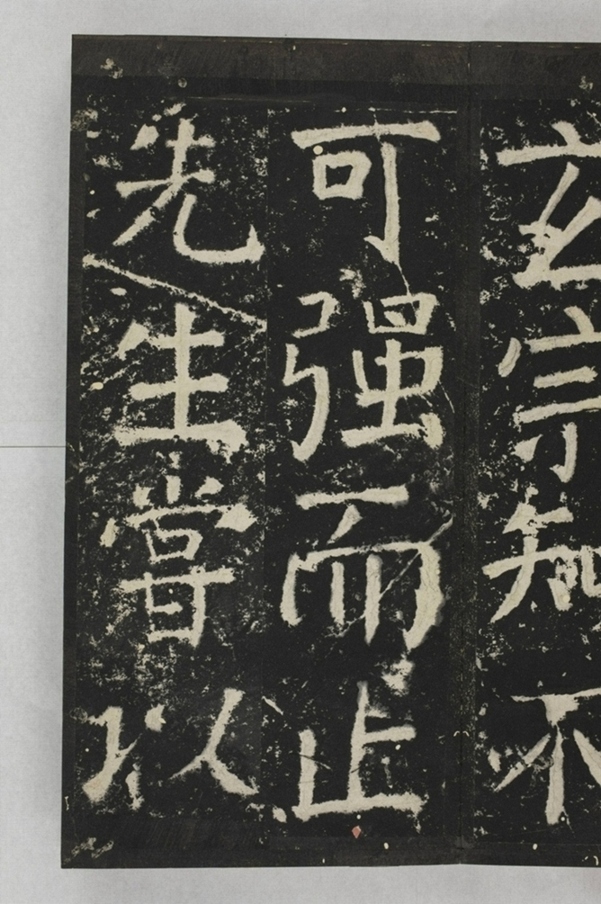 玄宗知不
可强而止
先生嘗以